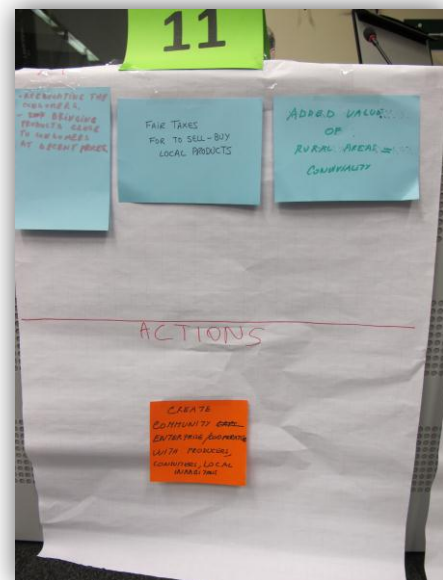 11
- REEDUCATING THE
CONSUMERS.
- BRINGING
PRODUCTS CLOSE
TO CONSUMERS
AT DECENT PRICES.
FAIR TAXES
FOR TO SELL-BUY
LOCAL PRODUCTS
ADDED VALUE
OF
RURAL AREAS =
CONVIVIALITY
ACTIONS
CREATE
COMMUNITY
ENTERPRISE/COOPERATIVE
WITH PRODUCERS,
CONSUMERS, LOCAL